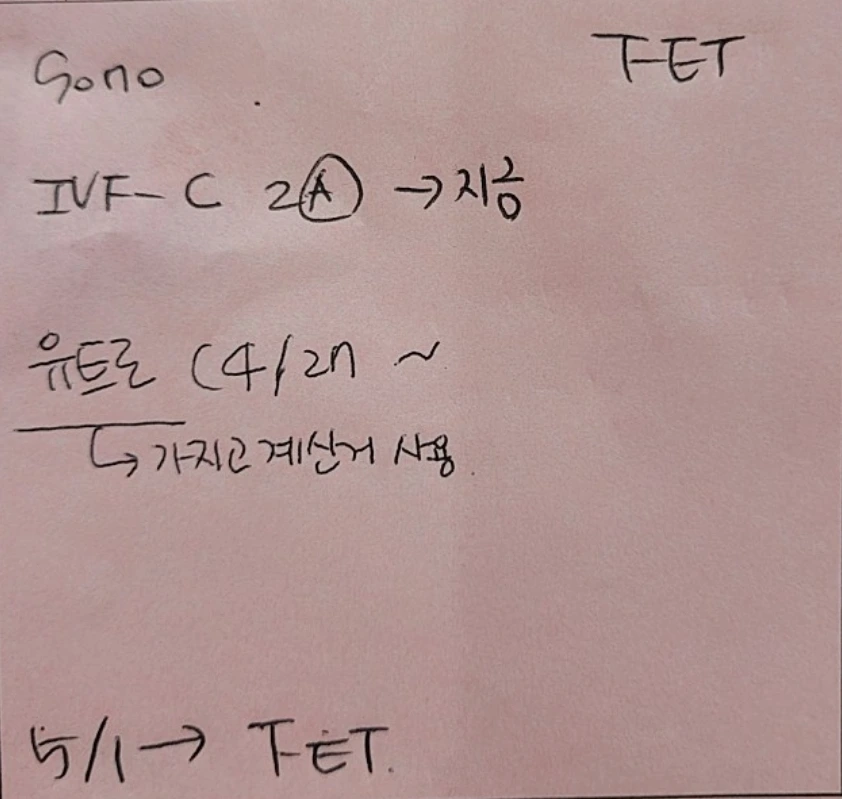 Sono TFET
IVF-C 2Ⓐ → 지응
유트로 (4/27 ~
↳ 가지고 계신거 사용.
5/1 → TFET.